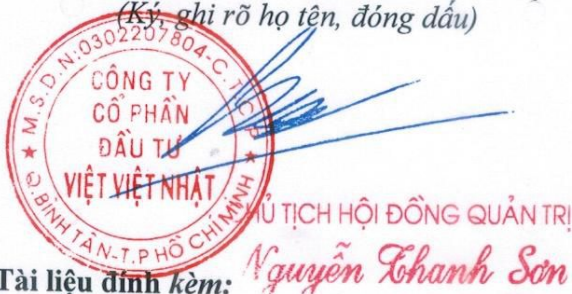 (Ký, ghi rõ họ tên, đóng dấu)
M.S.D.N:0302207804-C.T.C.P
CÔNG TY
CỔ PHẦN
ĐẦU TƯ
VIỆT VIỆT NHẬT
Q.BÌNH TÂN-T.P HỒ CHÍ MINH
HỦ TỊCH HỘI ĐỒNG QUẢN TRỊ
Nguyễn Thanh Sơn
Tài liệu đính kèm: